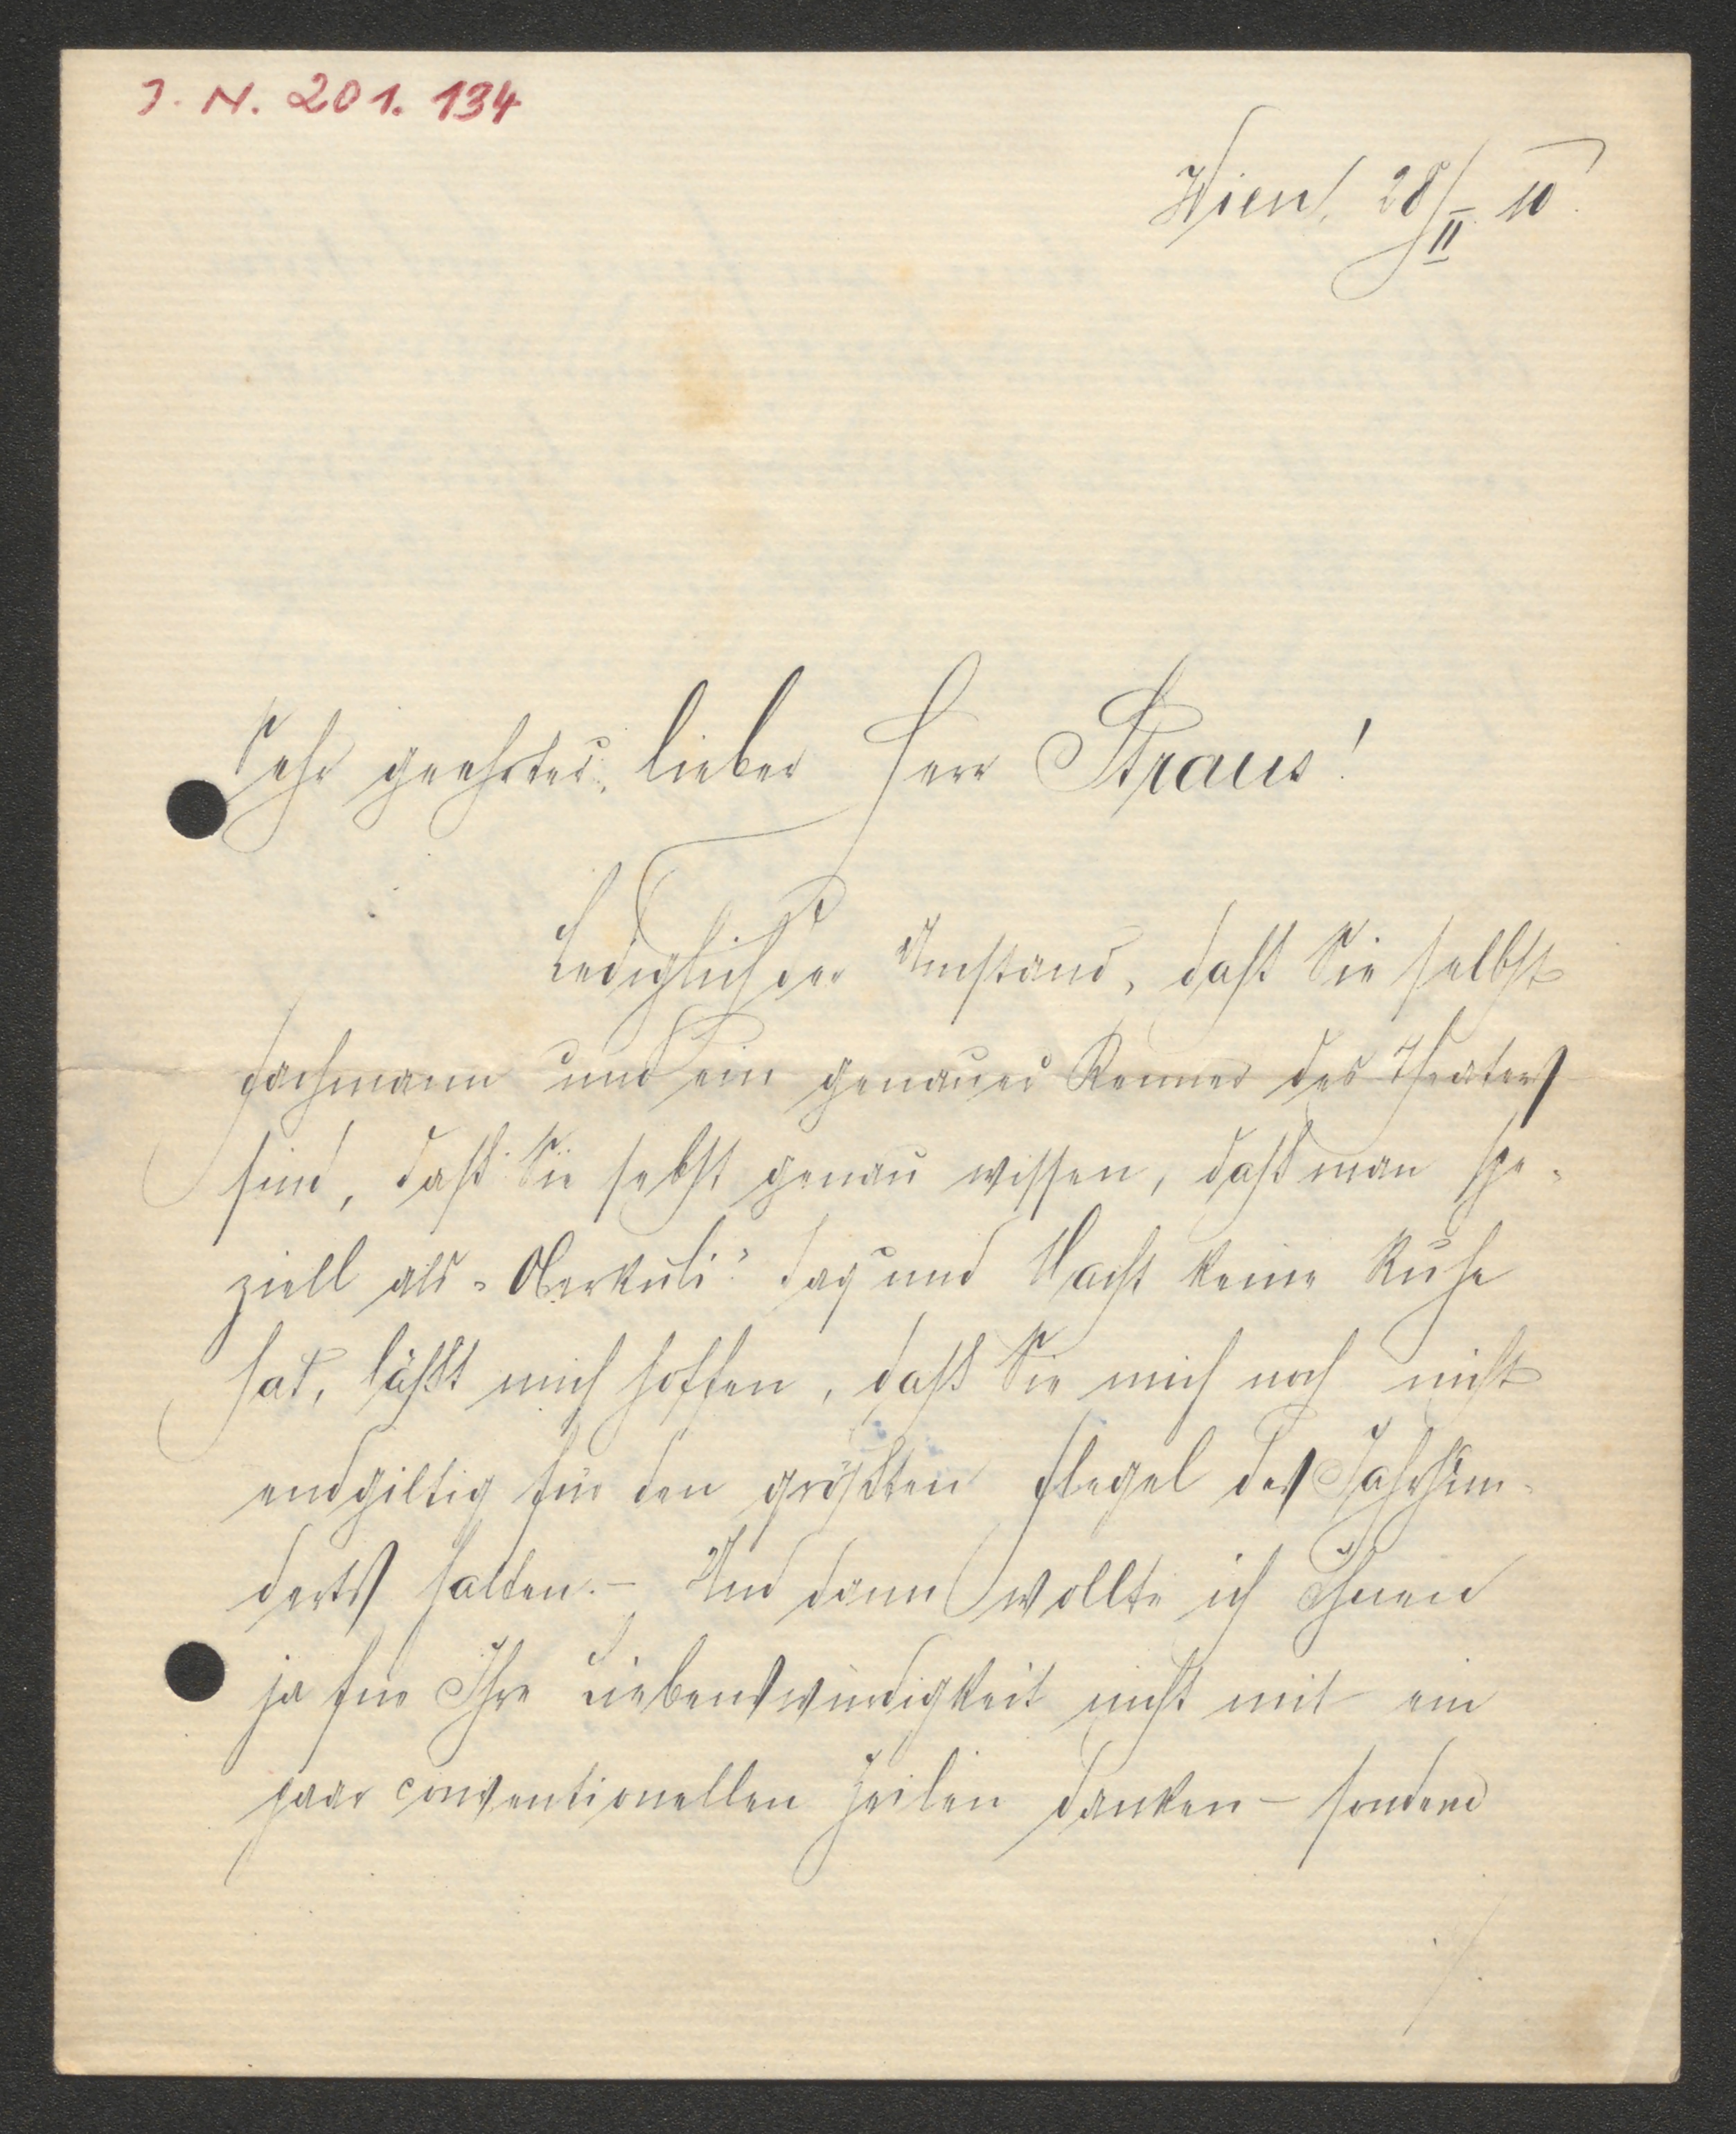 J. N. 201. 134
Wien, 28/II. 10.
Sehr geehrter, lieber Herr Straus!
Lediglich der Umstand, daß Sie selbst
Fachmann und ein genauer Kenner des Theaters
sind, daß Sie sebst genau wissen, daß man spe-
ziell als "Oberkuli" Tag und Nacht keine Ruhe
hat, läßt mich hoffen, daß Sie mich noch nicht
endgiltig für den größten Flegel des Jahrhun-
derts halten. – Und dann wollte ich Ihnen
ja für Ihre Liebenswürdigkeit nicht mit ein
paar conventionellen Zeilen danken – sondern
./.